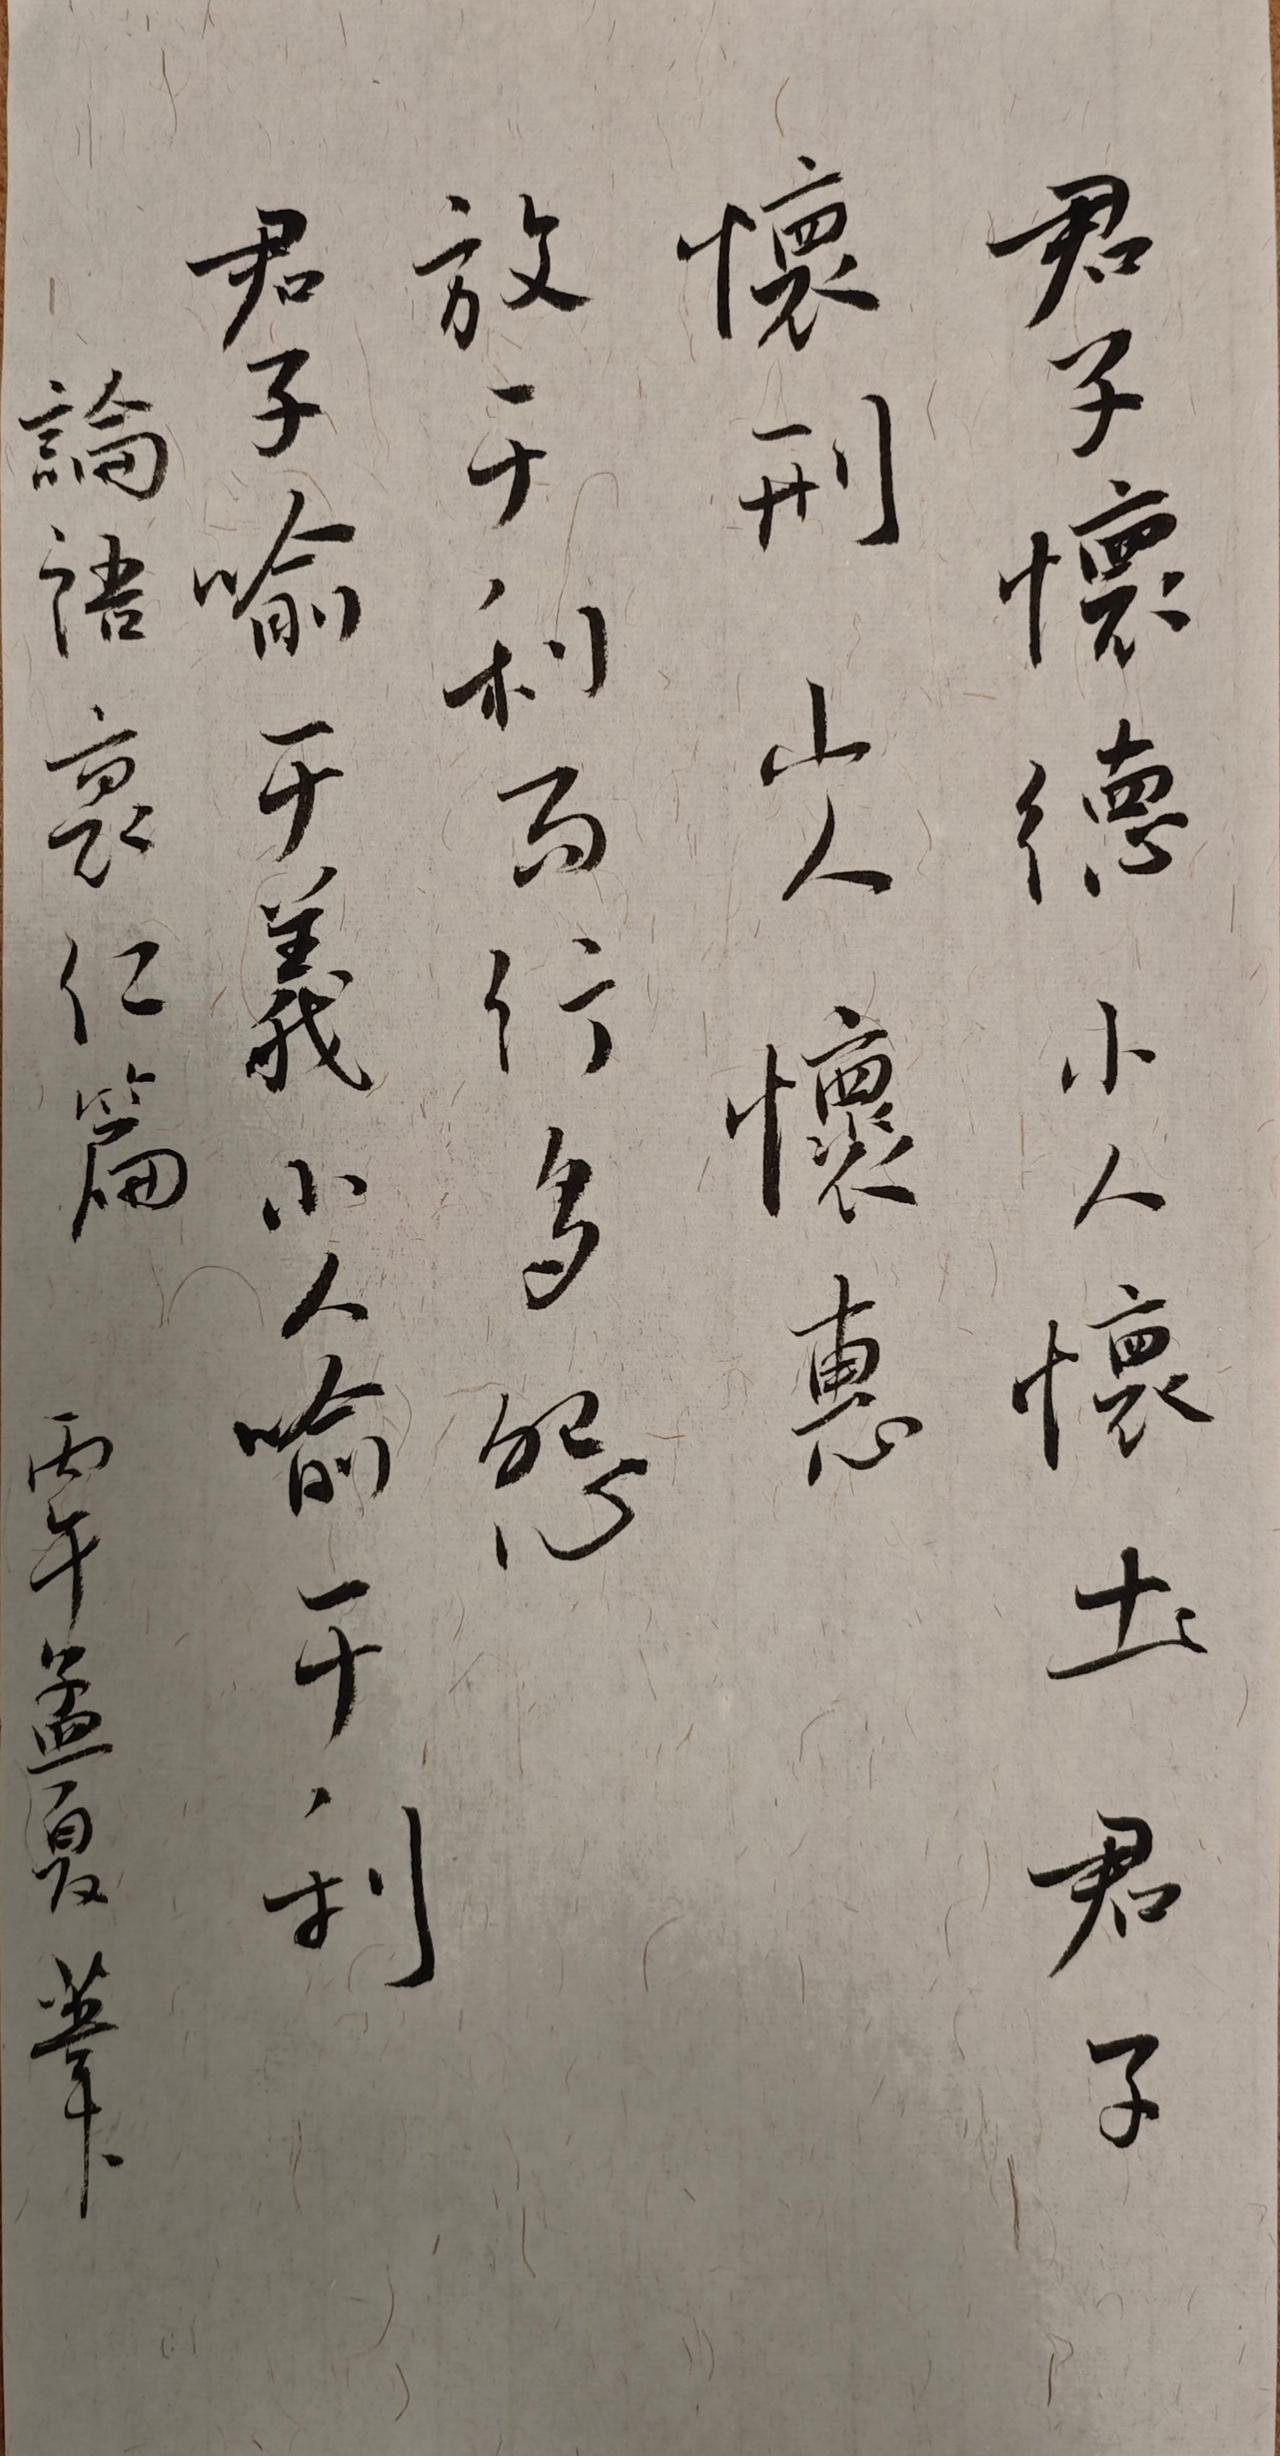 君子懷德小人懷土君子
懷刑小人懷惠
放于利而行多怨
君子喻于義小人喻于利
論語裏仁篇 丙午孟夏 筆